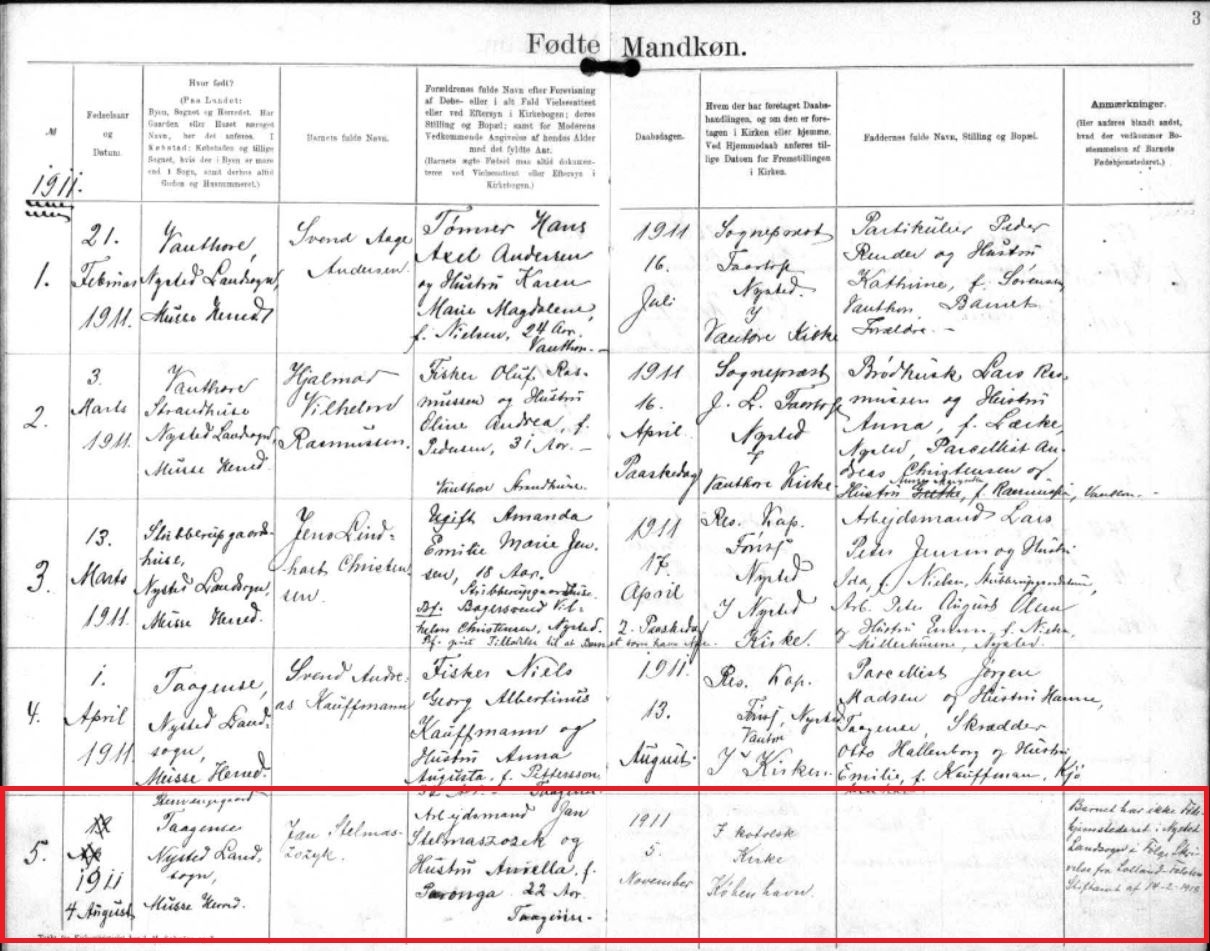 3
Fødte Mandkøn.
№
Fødselsaar
og
Datum.
Hvor født?
(Paa Landet:
Byen, Sognet og Herredet. Har
Gaarden eller Huset særeget
Navn, bør det anføres. I
Købstad: Købstaden og tillige
Sognet, hvis der i Byen er mere
end 1 Sogn, samt derhos altid
Gaden og Husnummeret.)
Barnets fulde Navn.
Forældrenes fulde Navn efter Forevisning
af Døbe- eller i alt Fald Vielsesattest
eller ved Eftersyn i Kirkebogen; deres
Stilling og Bopæl; samt for Moderens
Vedkommende Angivelse af hendes Alder
med det fyldte Aar.
(Barnets ægte Fødsel maa altid dokumen-
teres ved Vielsesattest eller Eftersyn i
Kirkebogen.)
Daabsdagen.
Hvem der har foretaget Daabs-
handlingen, og om den er fore-
tagen i Kirken eller hjemme.
Ved Hjemmedaab anføres til-
lige Datoen for Fremstillingen
i Kirken.
Faddernes fulde Navn, Stilling og Bopæl.
Anmærkninger.
(Her anføres blandt andet,
hvad der vedkommer Be-
stemmelsen af Barnets
Fødehjemstedsret.)
1911.
1.
21.
Februar
1911.
Vanthore,
Nysted Landsogn,
Musse Herred
Svend Aage
Andersen.
Tømrer Hans
Axel Andersen
og Hustru Karen
Marie Magdalene,
f. Nielsen, 24 Aar.
Vanthore. -
1911
16.
Juli
Sognepræst
Nysted.
I
Vantore Kirke
Partikulier Peder
Render og Hustru
Kathrine, f. Sørensen,
Vanthore. Barnet
Forældre. -
2.
3.
Marts
1911.
Vanthore
Strandhuse
Nysted Landsogn,
Musse Herred.
Hjalmar
Vilhelm
Rasmussen.
Fisker Oluf Ras-
mussen og Hustru
Eline Andrea, f.
Pedersen, 31 Aar. -
Vanthore Strandhuse.
1911
16.
April
Paaskedag
Sognepræst
J. L.
Nysted
I
Vanthore Kirke
Lars Ras-
mussen og Hustru
Anna, f. Lærke,
Nysted, Parcellist An-
dreas Christensen og
Hustru f. Rasmussen, Vantore. -
3.
13.
Marts
1911.
Stubberupgaard-
huse,
Nysted Landsogn,
Musse Herred.
Jens Lind-
hart Christen-
sen.
Ugift Amanda
Emilie Marie Jen-
sen, 18 Aar.
Stubberupgaardhuse.
Bf. Bagersvend Vil-
helm Christensen, Nysted.
Bf. givet Tilladelse til at Barnet
1911
17.
April
2. Paaskedag
Res. Kap.
Nysted
I Nysted
Kirke.
Arbejdsmand Lars
Peter Jensen og Hustru
Ida, f. Nielsen,
Arb. Peter August Olsen
og Hustru Emma, f.
Nysted.
4.
1.
April
1911.
Taagense,
Nysted Land-
sogn,
Musse Herred.
Svend Andre-
as Kauffmann
Fisker Niels
Georg Albertinus
Kauffmann og
Hustru Anna
Augusta, f. Pettersson
1911.
13.
August.
Res. Kap.
Nysted
Vantore
I Kirken.
Parcellist Jørgen
Madsen og Hustru Hanne,
Taagense, Skrædder
Otto Hallenborg og Hustru
Emilie, f. Kauffman,
5.
1911
4 August
Taagense
Nysted Land-
sogn,
Musse Herred.
Jan Stelmas-
zozyk.
Arbejdsmand Jan
Stelmaszozek og
Hustru Aurella, f.
22 Aar.
Taagense.-
1911
5
November
I katolsk
Kirke
København.
Barnet har ikke Føde-
hjemstedsret i Nysted
Landsogn i Følge Skri-
velse fra Lolland-Falsters
Stiftamt af 14-2-1912